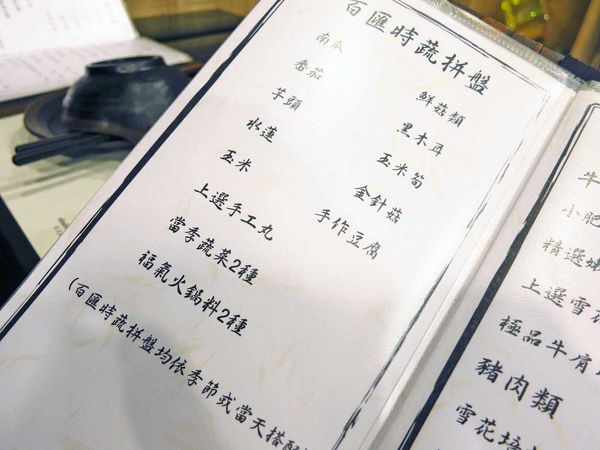 百匯時蔬拼盤
南瓜 鮮菇類
番茄 黑木耳
芋頭 玉米筍
水蓮 金針菇
玉米 手作豆腐
上選手工丸
當季蔬菜2種
福氣火鍋料2種
(百匯時蔬拼盤均依季節或當天搭配
牛
小肥
精選嫩
上選雪花
極品牛肩
豬肉類
雪花培